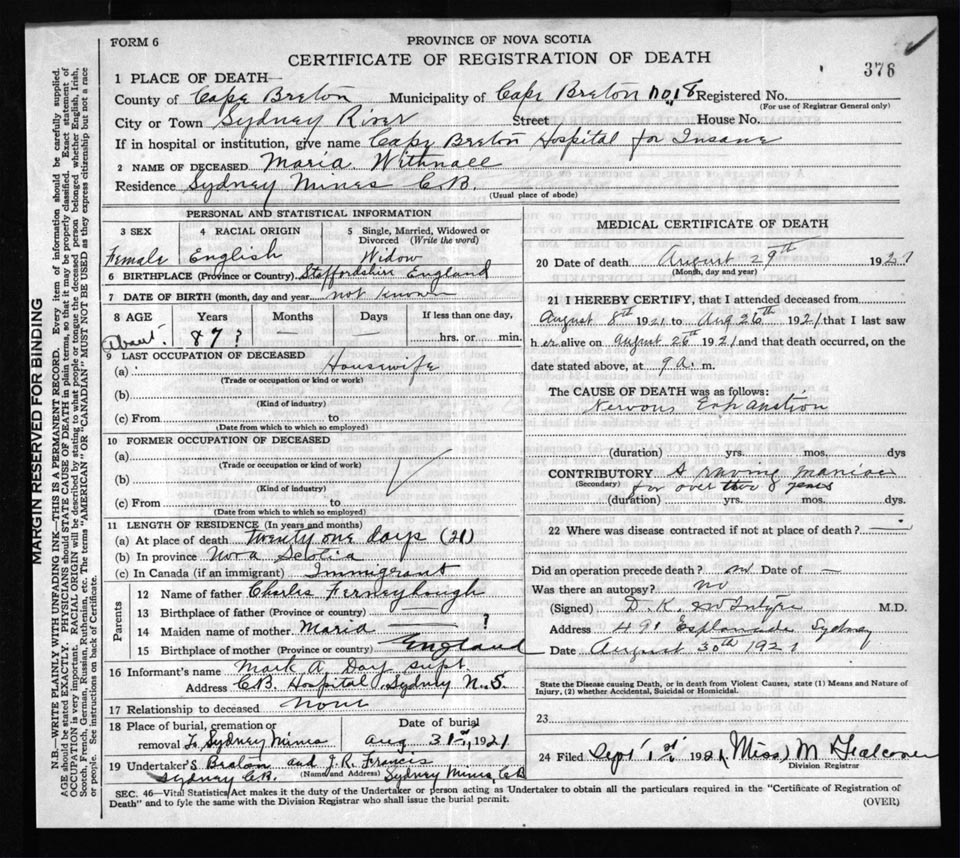 FORM 6
PROVINCE OF NOVA SCOTIA
CERTIFICATE OF REGISTRATION OF DEATH
376
1 PLACE OF DEATH—
County of Cape Breton Municipality of Cape Breton No 18 Registered No.
(For use of Registrar General only)
City or Town Sydney River Street House No.
If in hospital or institution, give name Cape Breton Hospital for Insane
2 NAME OF DECEASED Maria Withnall
Residence Sydney Mines C.B.
(Usual place of abode)
PERSONAL AND STATISTICAL INFORMATION
3 SEX 4 RACIAL ORIGIN 5 Single, Married, Widowed or Divorced (Write the word)
Female English Widow
6 BIRTHPLACE (Province or Country) Staffordshire England
7 DATE OF BIRTH (month, day and year not known
8 AGE Years Months Days If less than one day,
About 87 ? — — hrs. or min.
9 LAST OCCUPATION OF DECEASED
(a) Housewife
(Trade or occupation or kind or work)
(b)
(Kind of industry)
(c) From to
(Date from which to which so employed)
10 FORMER OCCUPATION OF DECEASED
(a)
(Trade or occupation or kind of work)
(b)
(Kind of industry)
(c) From to
(Date from which to which so employed)
11 LENGTH OF RESIDENCE (In years and months)
(a) At place of death twenty one days (21)
(b) In province Nova Scotia
(c) In Canada (if an immigrant) Immigrant
Parents
12 Name of father Charles Ferneyhough
13 Birthplace of father (Province or country) —
14 Maiden name of mother Maria — ?
15 Birthplace of mother (Province or country) England
16 Informant's name Mark A Day supt.
Address C.B. Hospital, Sydney N.S.
17 Relationship to deceased none
18 Place of burial, cremation or Date of burial
removal To Sydney Mines Aug 31st, 1921
19 Undertaker's and J.R. Francis
Sydney C.B. (Name and Address) Sydney Mines, C.B
MEDICAL CERTIFICATE OF DEATH
20 Date of death August 29th 1921
(Month, day and year)
21 I HEREBY CERTIFY, that I attended deceased from
August 8th 1921 to Aug 26th 1921 that I last saw
h er alive on August 26th 1921 and that death occurred, on the
date stated above, at 9 a. m.
The CAUSE OF DEATH was as follows:
Nervous Exhaustion
(duration) yrs. mos. dys
CONTRIBUTORY A raving maniac
(Secondary) for over 8 years
(duration) yrs. mos. dys.
22 Where was disease contracted if not at place of death? —
Did an operation precede death? no Date of —
Was there an autopsy? no
(Signed) D. K. McIntyre M.D.
Address 491 Esplanade Sydney
Date August 30th 1921
State the Disease causing Death, or in death from Violent Causes, state (1) Means and Nature of Injury, (2) whether Accidental, Suicidal or Homicidal.
23
24 Filed Sept 1st 1921 (Miss) M
Division Registrar
SEC. 46—Vital Statistics Act makes it the duty of the Undertaker or person acting as Undertaker to obtain all the particulars required in the "Certificate of Registration of
Death" and to fyle the same with the Division Registrar who shall issue the burial permit.
(OVER)
MARGIN RESERVED FOR BINDING
N.B.—WRITE PLAINLY WITH UNFADING INK—THIS IS A PERMANENT RECORD. Every item of information should be carefully supplied.
AGE should be stated EXACTLY. PHYSICIANS should STATE CAUSE OF DEATH in plain terms, so that it may be properly classified. Exact statement of
OCCUPATION is very important. RACIAL ORIGIN will be described by stating to what people or tongue the deceased person belonged whether English, Irish,
Scotch, French, German, Russian, Ruthenian, etc. The terms "AMERICAN" OR "CANADIAN" MUST NOT BE USED as they express citizenship but not a race
or people. See instructions on back of Certificate.